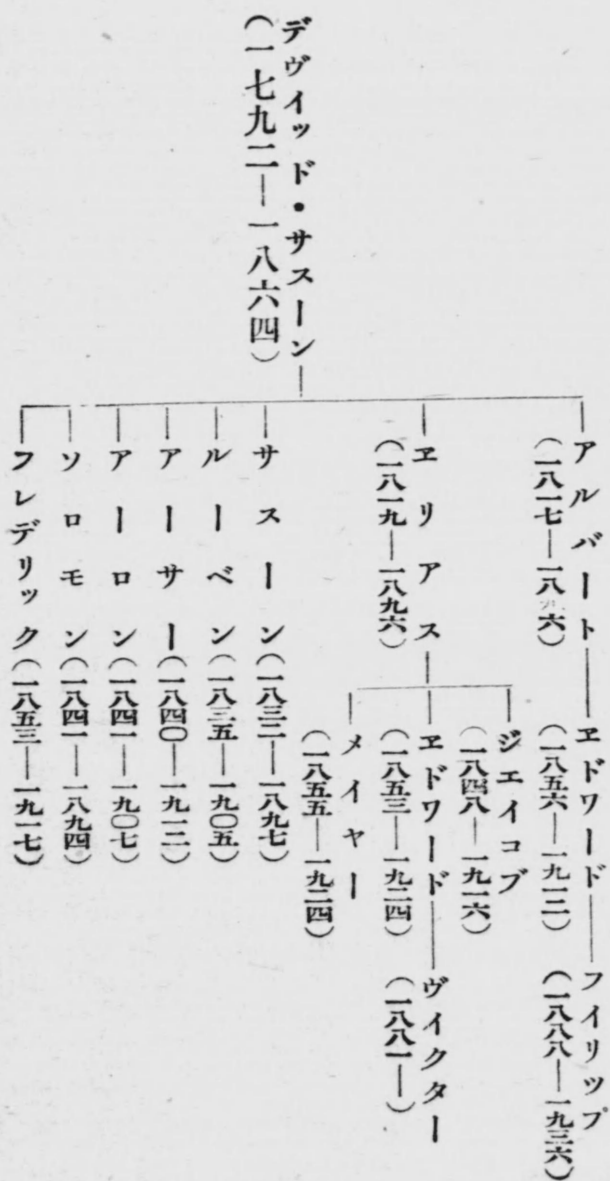 デヴイッド・サスーン
(一七九二―一八六四)
アルバート
(一八一七―一八九六)
エドワード
(一八五六―一九一二)
フイリップ
(一八八八―一九三六)
ヱリアス
(一八一九―一八九六)
ジエイコブ
(一八四八―一九一六)
ヱドワード
(一八五三―一九二四)
ヴイクター
(一八八一―)
メイヤー
(一八五五―一九二四)
サスーン(一八三二―一八九七)
ルーベン(一八三五―一九〇五)
アーサー(一八四〇―一九一二)
アーロン(一八四一―一九〇七)
ソロモン(一八四一―一八九四)
フレデリック(一八五三―一九一七)